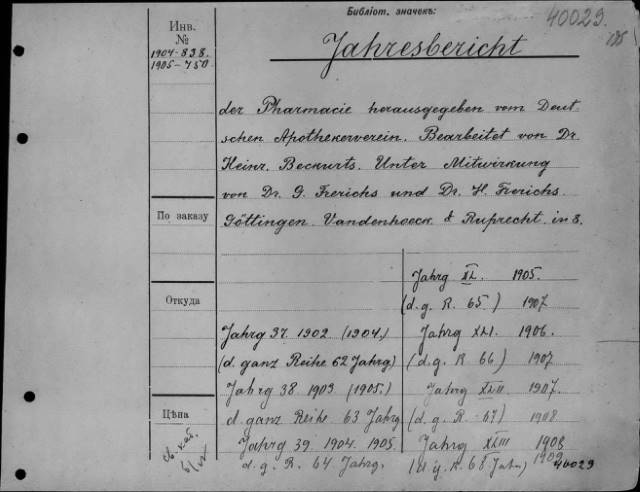 Библіот. значекъ:
40029.
Инв.
№
1904-838.
1905-750
Jahresbericht
der Pharmacie herausgegeben vom Deut-
schen Apothekerverein. Bearbeitet von Dr.
Heinr. Beckurts. Unter Mitwirkung
von Dr. G. Frerichs und Dr. H. Frerichs.
Göttingen. Vandenhoeck & Ruprecht. in 8.
По заказу
Откуда
Цѣна
Jahrg 37. 1902 (1904.)
(d. ganz Reihe 62 Jahrg.)
Jahrg 38 1903 (1905.)
d. ganz Reihe 63 Jahrg
Jahrg 39. 1904. 1905.
d. g. R. 64 Jahrg.
Jahrg XL. 1905.
(d. g. R. 65) 1907
Jahrg XLI. 1906.
(d. g. R 66) 1907
Jahrg XLII 1907.
(d. g. R. 67) 1908
Jahrg XLIII 1908
R. 68 Jahr.) 1909
40029